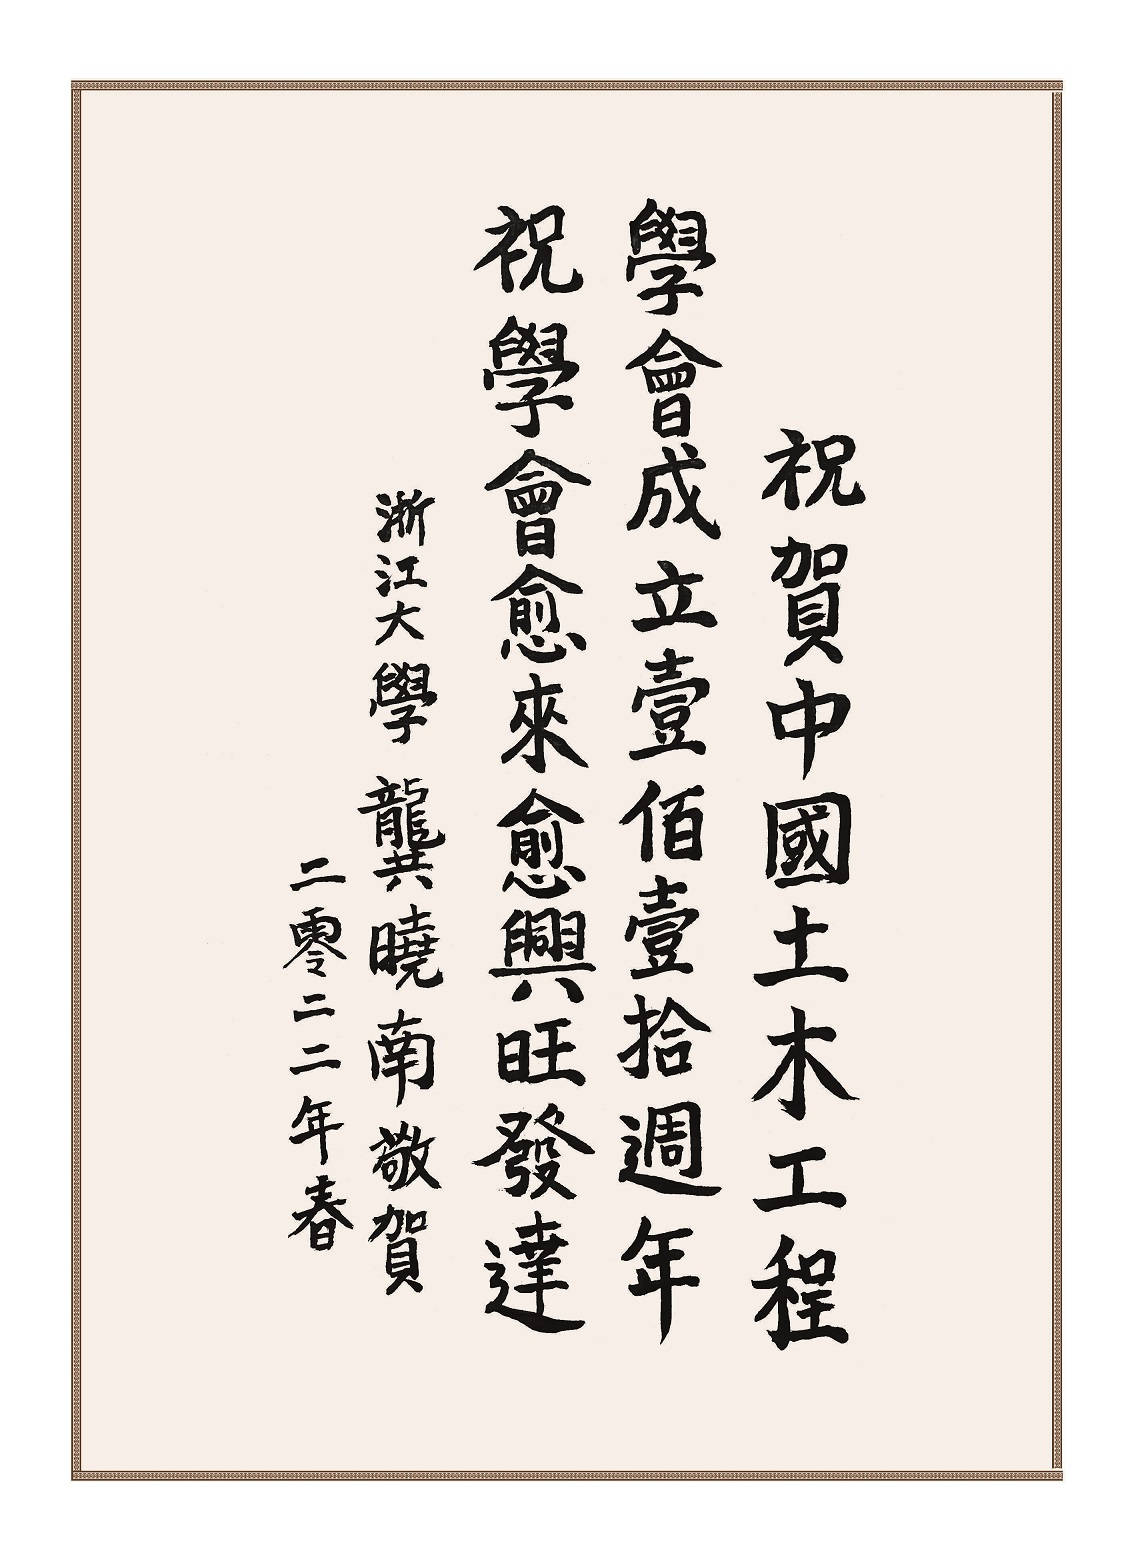 祝賀中國土木工程
學會成立壹佰壹拾週年
祝學會愈來愈興旺發達
浙江大學 龔曉南敬賀
二零二二年春